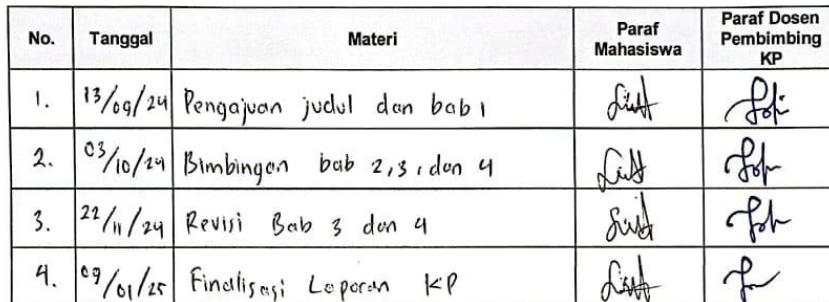 No. Tanggal Materi Paraf Mahasiswa Paraf Dosen Pembimbing KP
1. 13/09/24 Pengajuan judul dan bab 1
2. 03/10/24 Bimbingan bab 2,3, dan 4
3. 22/11/24 Revisi Bab 3 dan 4
4. 09/01/25 Finalisasi Laporan KP